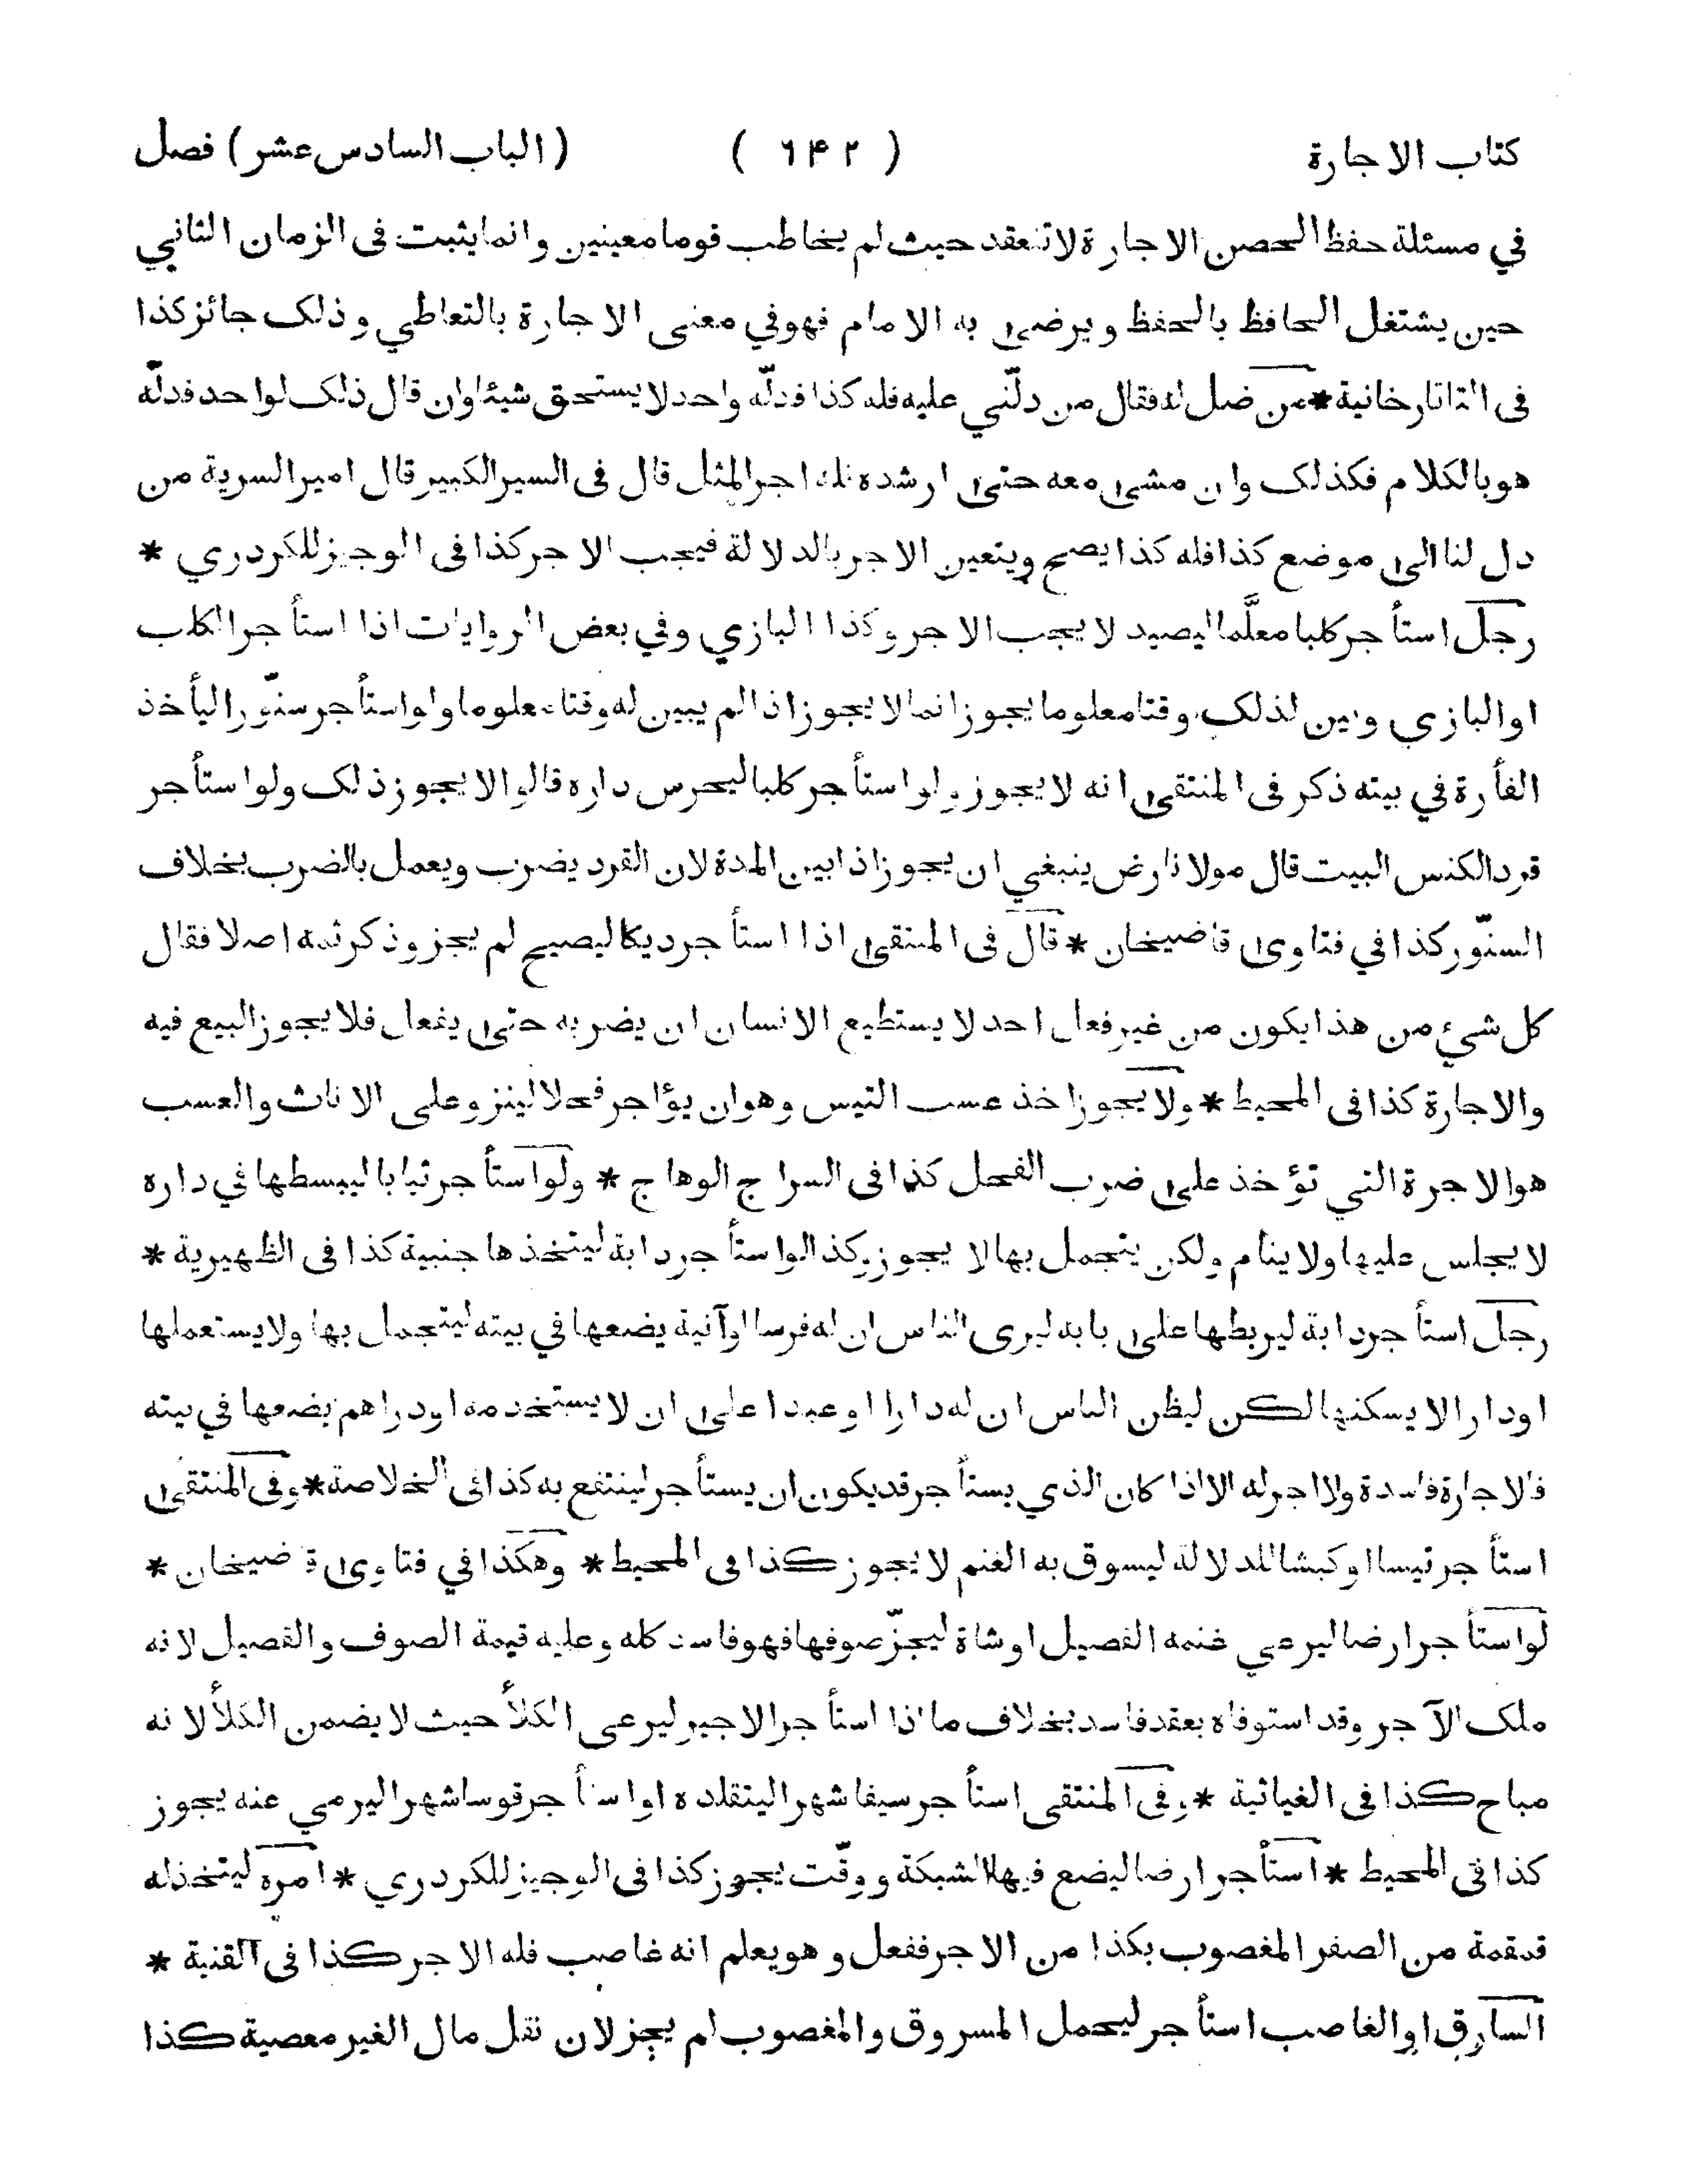 كتاب الاجارة ( ٦۴٢ ) ( الباب السادس عشر ) فصل
في مسئلة حفظ الحصن الاجارة لا تنعقد حيث لم يخاطب قوما معينين وانما يثبت فى الزمان الثاني
حين يشتغل الحافظ بالحفظ ويرضى به الامام فهو في معنى الاجارة بالتعاطي وذلك جائز كذا
فى التاتارخانية * من ضل له فقال من دلّني عليه فله كذا فدلّه واحد لا يستحق شيئا وان قال ذلك لواحد فدلّه
هو بالكلام فكذلك وان مشى معه حتى ارشده فله اجر المثل قال فى السير الكبير قال امير السرية من
دل لنا الى موضع كذا فله كذا يصح ويتعين الاجر بالدلالة فيجب الاجر كذا فى الوجيز للكردري *
رجل استأجر كلبا معلَّما ليصيد لا يجب الاجر وكذا البازي وفي بعض الروايات اذا استأجر الكلب
او البازي وبين لذلك وقتا معلوما يجوز انما لا يجوز اذا لم يبين له وقتا معلوما ولو استأجر سنّورا ليأخذ
الفأرة في بيته ذكر فى المنتقى انه لا يجوز ولو استأجر كلبا ليحرس داره قالوا لا يجوز ذلك ولو استأجر
قردا لكنس البيت قال مولانا رض ينبغي ان يجوز اذا بين المدة لان القرد يضرب ويعمل بالضرب بخلاف
السنّور كذا في فتاوى قاضيخان * قال فى المنتقى اذا استأجر ديكا ليصيح لم يجز وذكر ثمه اصلا فقال
كل شيء من هذا يكون من غير فعل احد لا يستطيع الانسان ان يضربه حتى يفعل فلا يجوز البيع فيه
والاجارة كذا فى المحيط * ولا يجوز اخذ عسب التيس وهو ان يؤاجر فحلا لينزو على الاناث والعسب
هو الاجرة التي تؤخذ على ضرب الفحل كذا فى السراج الوهاج * ولو استأجر ثيابا ليبسطها في داره
لا يجلس عليها ولا ينام ولكن يتجمل بها لا يجوز وكذا لو استأجر دابة ليتخذها جنيبة كذا فى الظهيرية *
رجل استأجر دابة ليربطها على بابه ليرى الناس ان له فرسا او آنية يضعها في بيته ليتجمل بها ولا يستعملها
او دارا لا يسكنها لكن ليظن الناس ان له دارا او عبدا على ان لا يستخدمه او دراهم يضعها في بيته
فالاجارة فاسدة ولا اجر له الا اذا كان الذي يستأجر قد يكون ان يستأجر لينتفع به كذا في الخلاصة * وفى المنتقى
استأجر تيسا او كبشا للدلالة ليسوق به الغنم لا يجوز كذا فى المحيط * وهكذا في فتاوى قاضيخان *
لو استأجر ارضا ليرعى غنمه الفصيل او شاة ليجزّ صوفها فهو فاسد كله وعليه قيمة الصوف والفصيل لانه
ملك الآجر وقد استوفاه بعقد فاسد بخلاف ما اذا استأجر الاجير ليرعى الكلأ حيث لا يضمن الكلأ لانه
مباح كذا فى الغياثية * وفى المنتقى استأجر سيفا شهرا ليتقلده او استأجر قوسا شهرا ليرمي عنه يجوز
كذا فى المحيط * استأجر ارضا ليضع فيها الشبكة ووقّت يجوز كذا فى الوجيز للكردري * امره ليتخذ له
قمقمة من الصفر المغصوب بكذا من الاجر ففعل وهو يعلم انه غاصب فله الاجر كذا فى القنية *
السارق او الغاصب استأجر ليحمل المسروق والمغصوب لم يجز لان نقل مال الغير معصية كذا